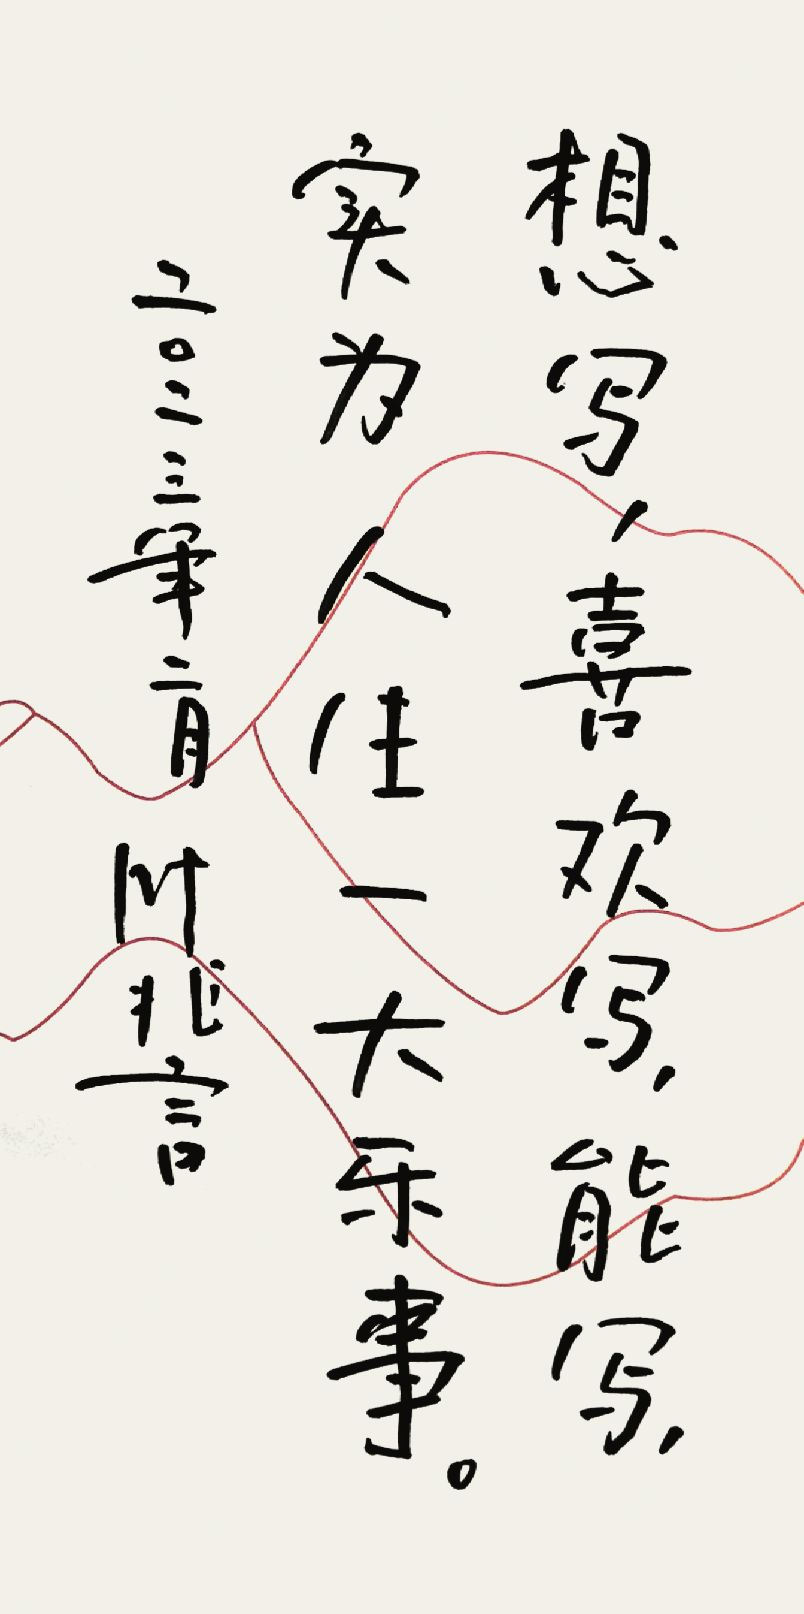 想写，喜欢写，能写，
实为人生一大乐事。
二〇二三年二月 叶兆言